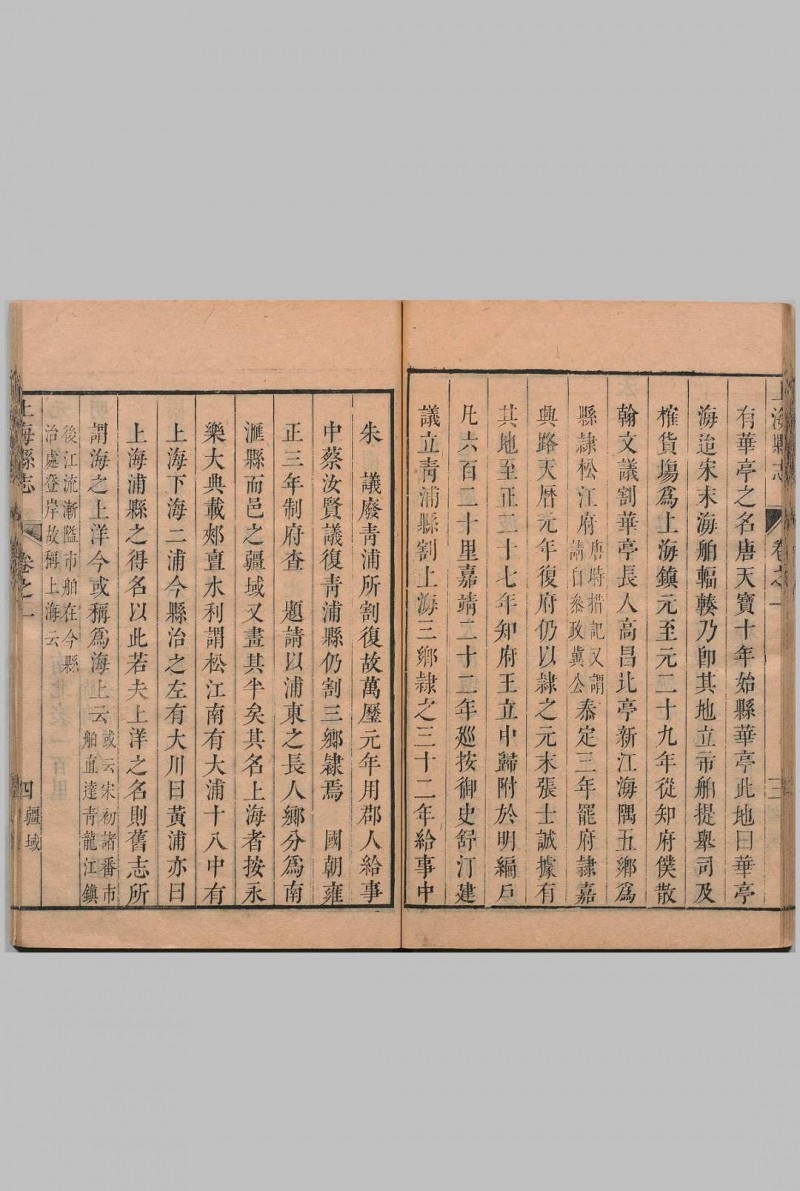 上海縣志 卷之一 三
有華亭之名唐天寶十年始縣華亭此地曰華亭
海迨宋末海舶輻輳乃卽其地立市舶提舉司及
榷貨場爲上海鎮元至元二十九年從知府僕散
翰文議割華亭長人高昌北亭新江海隅五鄉爲
縣隸松江府唐時措記又謂請自叅政冀公泰定三年罷府隸嘉
興路天曆元年復府仍以隸之元末張士誠據有
其地至正二十七年知府王立中歸附於明編戶
凡六百二十里嘉靖二十二年廵按御史舒汀建
議立靑浦縣割上海三鄉隸之三十二年給事中
朱 議廢靑浦所割復故萬曆元年用郡人給事
中蔡汝賢議復靑浦縣仍割三鄉隸焉 國朝雍
正三年制府查 題請以浦東之長人鄉分爲南
滙縣而邑之疆域又畫其半矣其名上海者按永
樂大典載郟亶水利謂松江南有大浦十八中有
上海下海二浦今縣治之左有大川曰黃浦亦曰
上海浦縣之得名以此若夫上洋之名則舊志所
謂海之上洋今或稱爲海上云或云宋初諸番市舶直達靑龍江鎮
後江流漸隘市舶在今縣治處登岸故稱上海云
上海縣志 卷之一 四 疆域